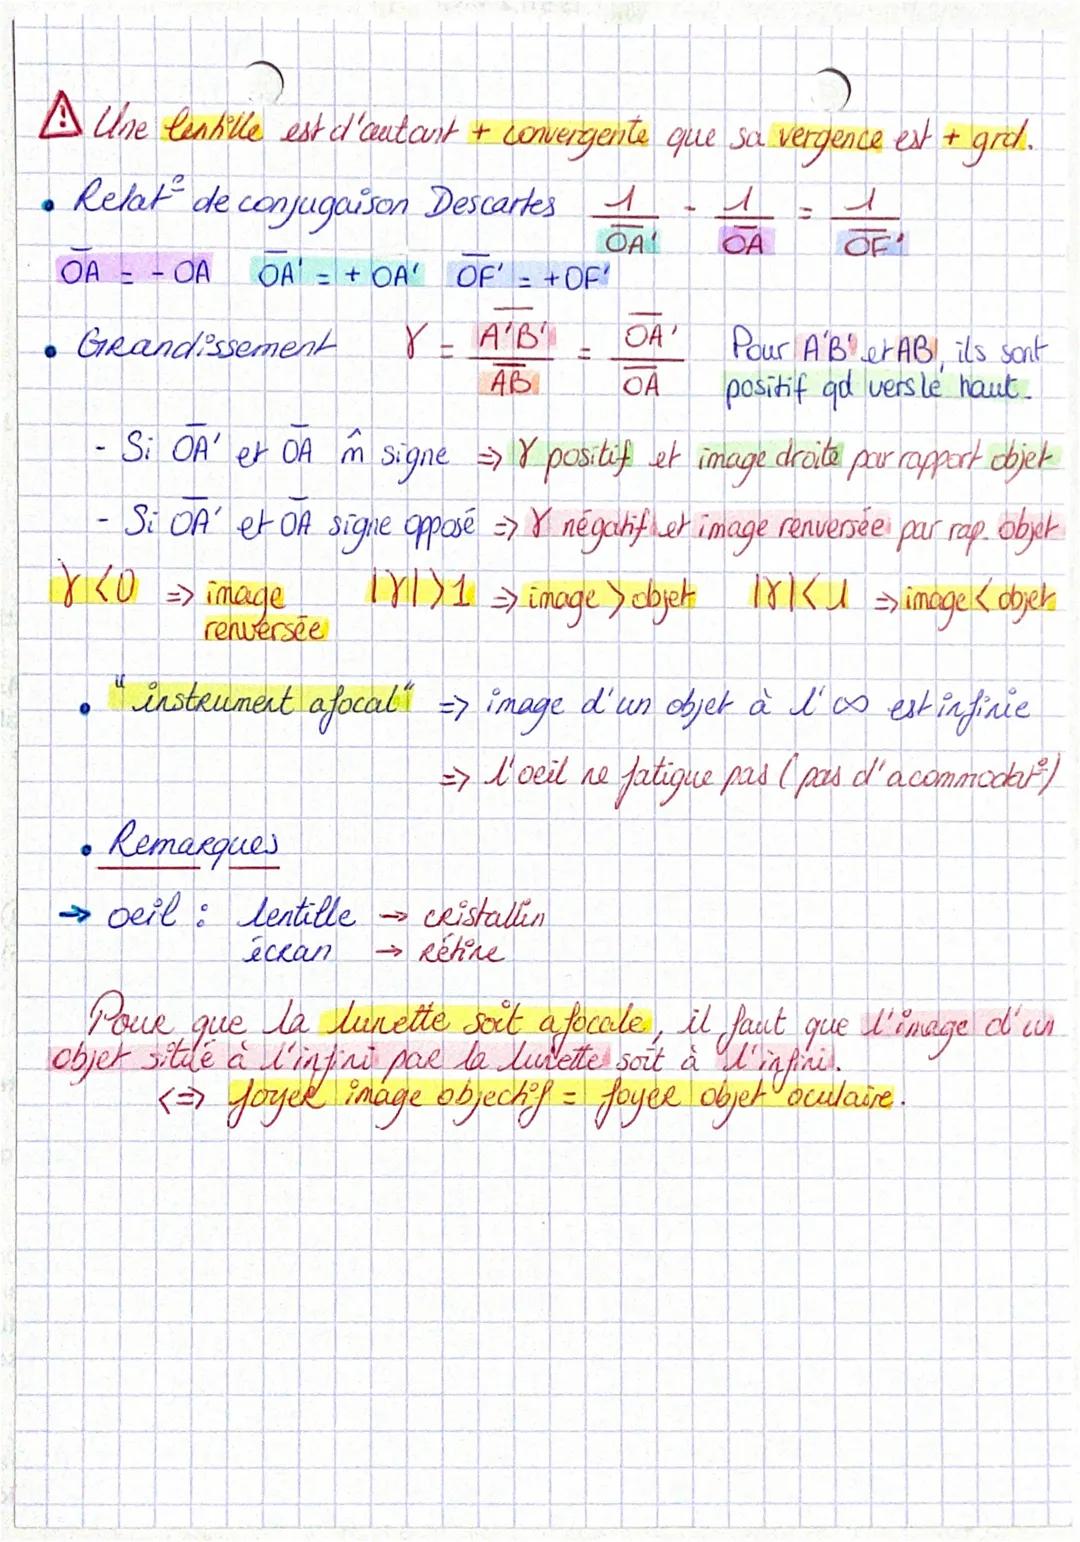 ⚠ Une lentille est d'autant + convergente que sa vergence est + grd.
• Relat° de conjugaison Descartes 1/O̅A̅' - 1/O̅A̅ = 1/O̅F̅'
O̅A̅ = - OA O̅A̅' = + OA' O̅F̅' = + OF'
• Grandissement γ = A̅'B̅'/A̅B̅ = O̅A̅'/O̅A̅ Pour A'B' et AB, ils sont
positif qd vers le haut.
- Si O̅A̅' et O̅A̅ m̂ signe => γ positif et image droite par rapport objet
- Si O̅A̅' et O̅A̅ signe opposé => γ négatif et image renversée par rap. objet
γ < 0 => image |γ| > 1 => image > objet |γ| < 1 => image < objet
renversée
• "instrument afocal" => image d'un objet à l'∞ est infinie
=> l'oeil ne fatigue pas (pas d'acommodat°)
• Remarques
→ oeil : lentille → cristallin
écran → rétine
Pour que la lunette soit afocale, il faut que l'image d'un
objet situé à l'infini par la lunette soit à l'infini.
<=> foyer image objectif = foyer objet oculaire.